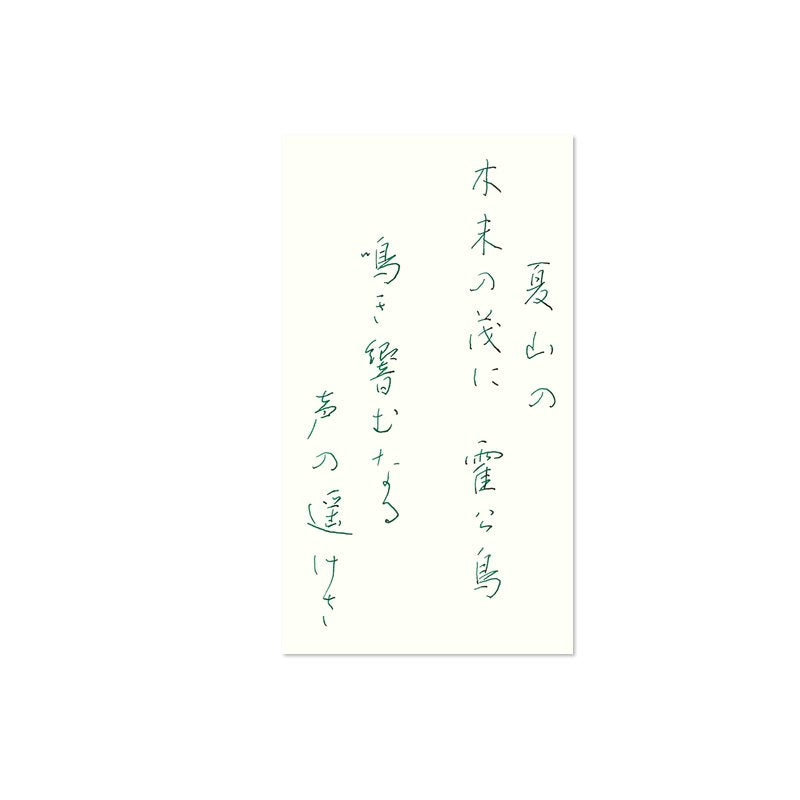 夏山の
木末の茂に　霍公鳥
鳴き響むなる
声の遥けさ